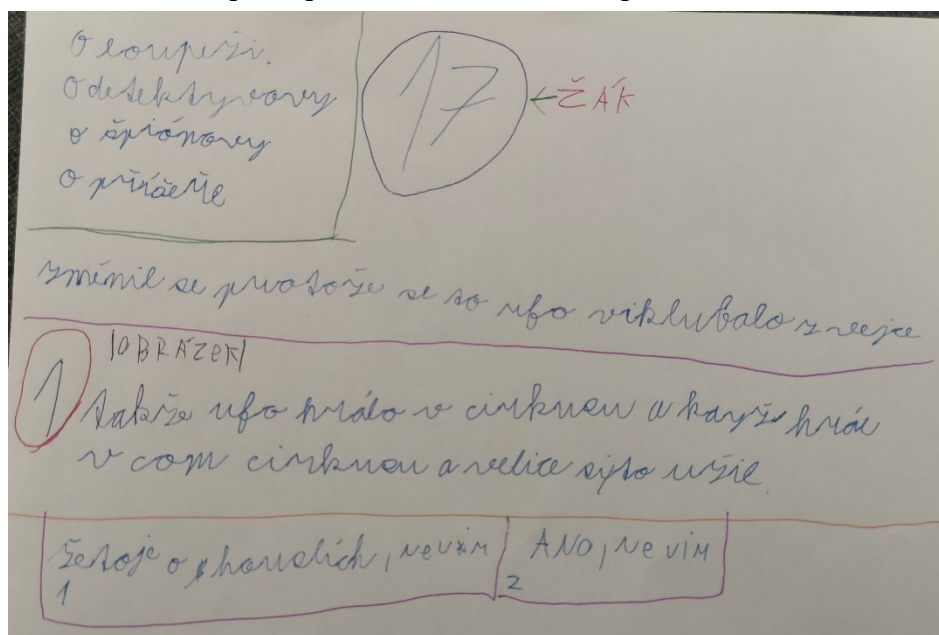 O loupeži.
O detektyvovy
o špiónovy
o příšeře
17
←ŽÁK
změnil se protože se to ufo viklubalo z vejce
1
|OBRÁZEK|
takže ufo hrálo v cirkusu a když hrál
v tom cirkusu a velice si to užil.
žetoje o houslích, nevim
1
ANO, NEVIM
2